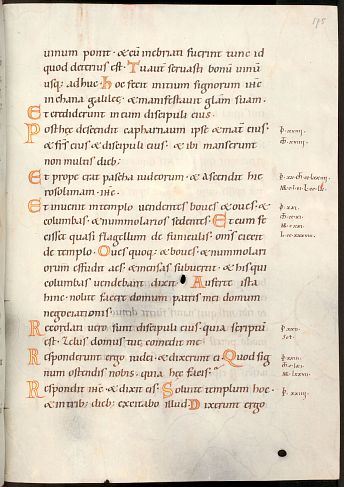 uinum ponit · & cũ inebriati fuerint tunc id
quod deterius est · Tu aut seruasti bonũ uinũ
usq; adhuc · hoc fecit initium signorum ihc
in chana galileę · & manifestauit gl̃am suam ·
Et crediderunt in eum discipuli eius ·
Post hęc descendit capharnaum ipse & mat̃ eius ·
& fr̃s eius & discipuli eius · & ibi manserunt
non multis dieb;
Et prope erat pascha iudeorum · & ascendit hie
rosolimam · ihc ·
Et inuenit in templo uendentes boues & oues · &
columbas · & nummolarios sedentes · Et cum fe
cisset quasi flagellum de funiculis · oms̃ eiecit
de templo · Oues quoq; & boues · & nummolari
orum effudit aes · & mensas subuertit · & his qui
columbas uendebant dixit · Auferte ista
hinc · nolite facere domum patris mei domum
negociationis ·
Recordati uero sunt discipuli eius · quia scriptũ
est · Zelus domus tuę comedit me
Responderunt ergo iudei · & dixerunt ei · Quod sig
num ostendis nobis · quia hęc facis ·
Respondit ihc · & dixit eis · Soluite templum hoc ·
& in trib; dieb; excitabo illud · Dixerunt ergo